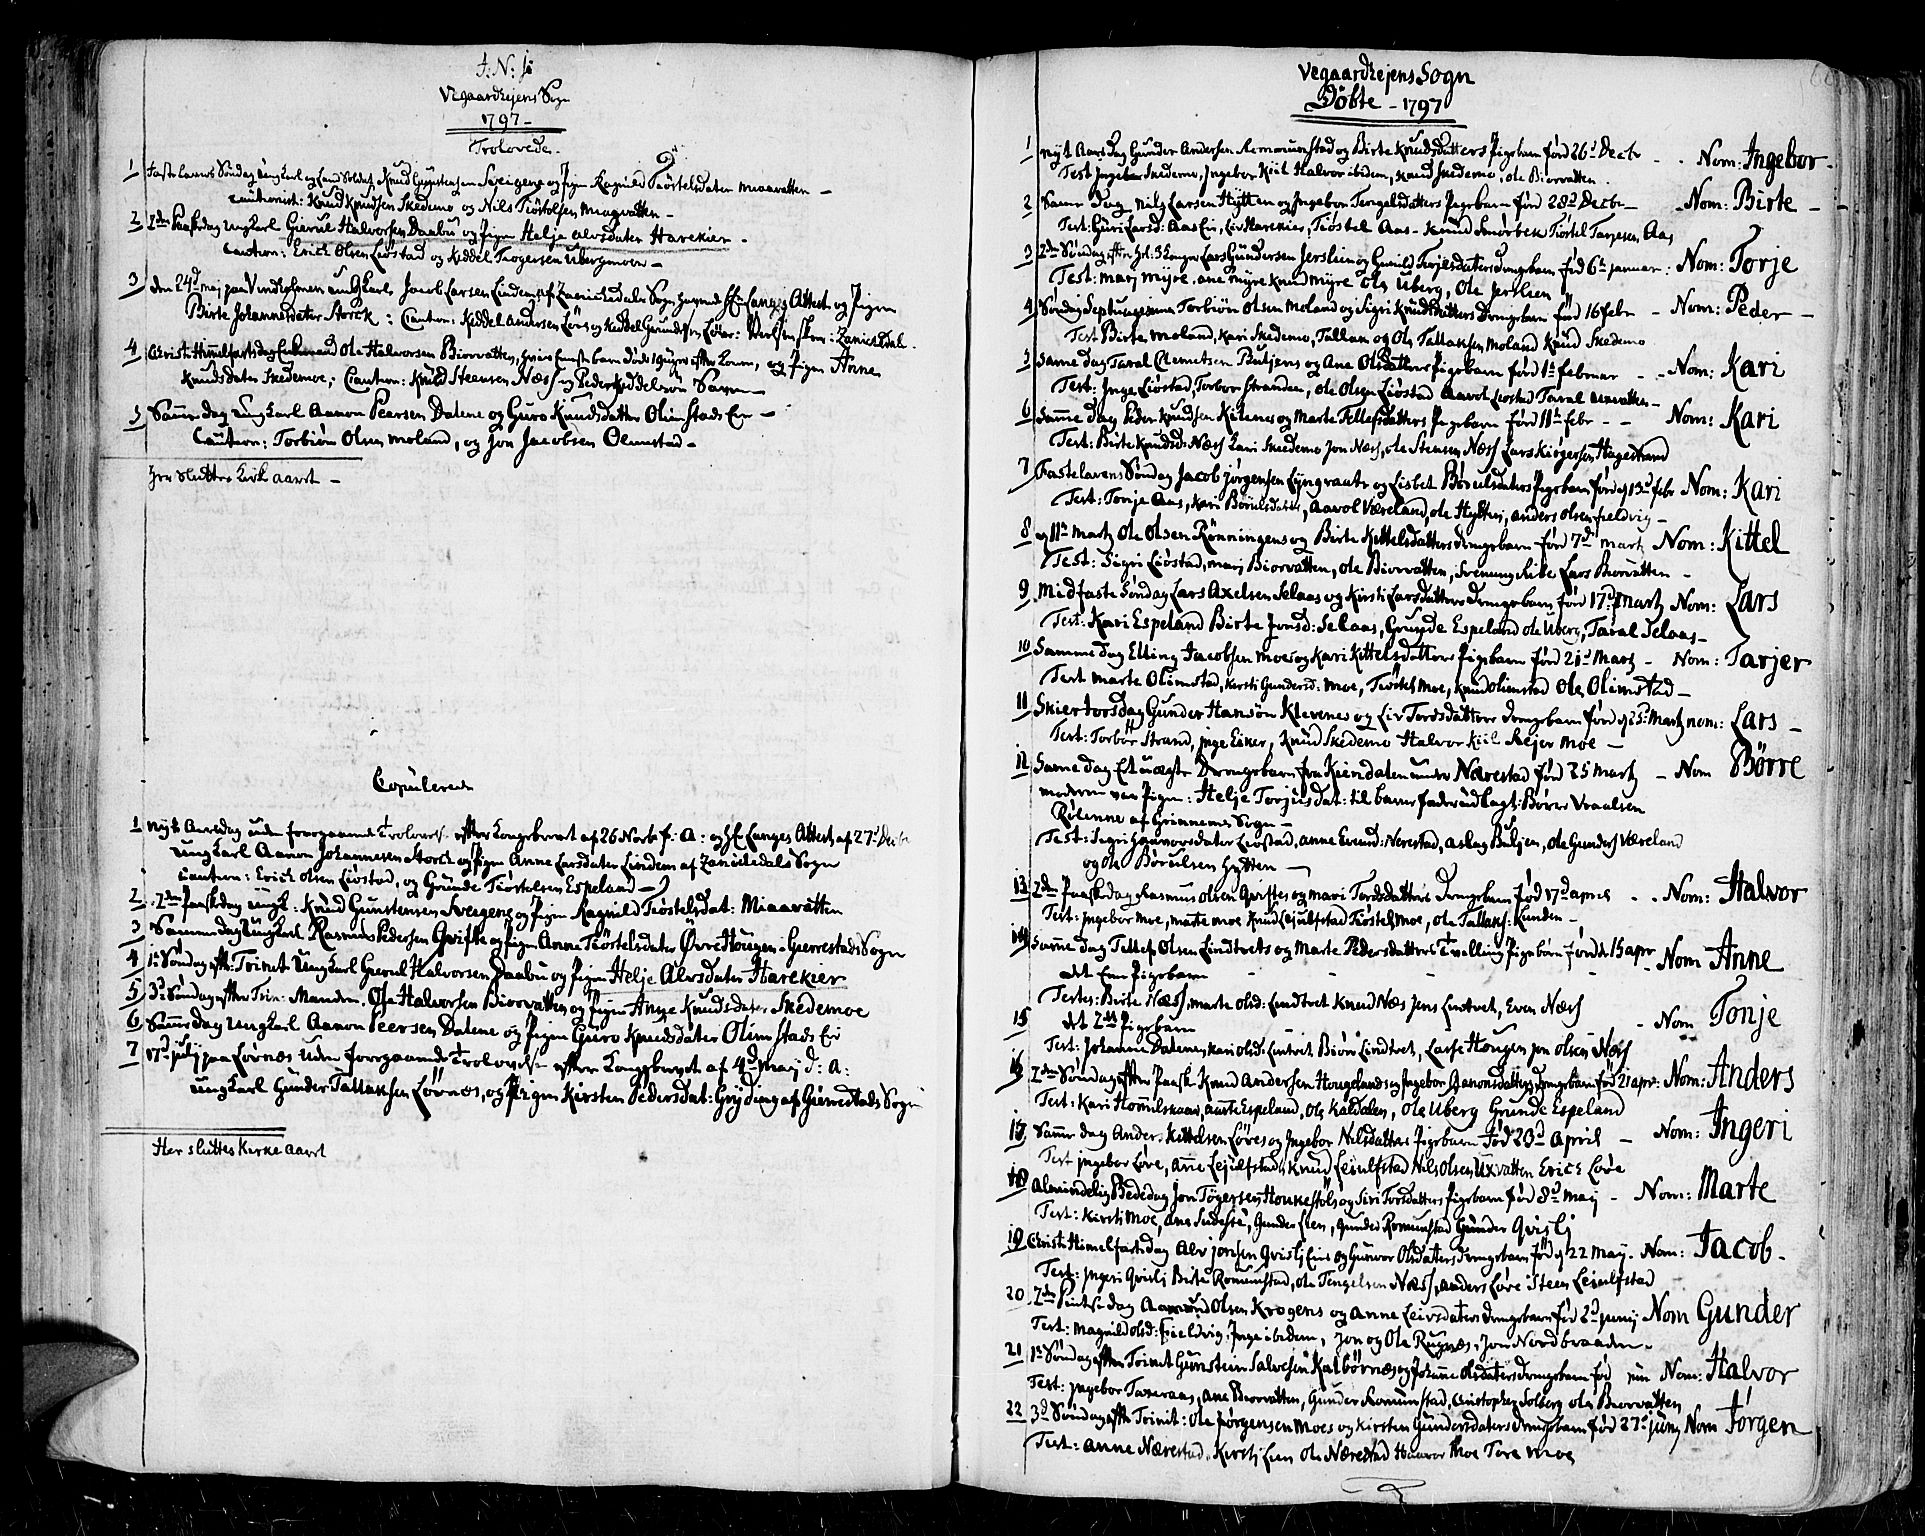 J: N: J:
Vegaardhejens Sogn
1797 –
Trolovede
1 Faste lavens Søndag Ungkarl og Land Soldat Knud Gunstensen Sveigens og Pigen Ragnild Tiøstelsdater Miaavatten –
Cautionist: Knud Knudsen Skedemo og Nils Tiøstolsen Miaavatten –
2 2den Paaskedag Ungkarl Gierul Halvorsen Daabu og Pigen Helje Alvsdater Harekier –
Caution: Erich Olsen Liøstad og Keddel Tiogersen Ubergmoen –
3 den 24d maj paa Vindholmen Ungkarl Jacob Larsen Lindem af Zanikedals Sogn Hr. Langes Attest og Pigen
Birte Johannesdater Storck : Caution: Keddel Andersen Løv og Keddel
4 Christi Himmelfartsdag Enkemand Ole Halvorsen Biorvatten, og Pigen Anne
Knudsdater Skedemoe, Caution: Knud Steensen Næss og Peder Keddelsøn Savn –
5 Samme dag Ungkarl Aanon Peersen Dalene og Guro Knudsdatter Olimstads Eie –
Caution: Torbiøn Olsen Moland, og Jon Jacobsen Olimstad –
Her Sluttes Kirke Aaret –
Copulerede
1 Nyt Aarsdag uden foregaaende Trolovelse efter Kongebrevet af 26 Novb f: A: og Hr Langes Attest af 27d Decbr
Ungkarl Aanon Johannesen Storck og Pigen Anne Larsdater Lindem af Zanikedals Sogn
Caution: Erich Olsen Liøstad, og Grunde Tiøstelsen Espeland –
2 2den Paaskedag Ungk: Knud Gunstensen Sveigens og Pigen Ragnild Tiøstelsdat: Miaavatten
3 Samme dag Ungkarl Rasmus Pedersen Qvifte og Pigen Anne Tiøstelsdater Øvre Hougen i Gierrestads Sogn
4 1s Søndag eft: Trinit Ungkarl Gierul Halvorsen Daabu og Pigen Helje Alvsdater Harekier
5 3d Søndag efter Trin: Manden Ole Halvorsen Biorvatten og Pigen Anne Knudsdater Skedemoe
6 Samme dag Ungkarl Aanon Peersen Dalene og Pigen Guro Knudsdater Olimstads Eie
7 17d July paa Lovnæs uden foregaaende Trolovelse efter Kongebrevet af 4d Maij d: A:
Ungkarl Gunder Tallaksen Løvnæs, og Pigen Kirsten Pedersdat: Gryding af Gierrestads Sogn
Her sluttes Kirke Aaret
Vegaardhejens Sogn
Døbte – 1797
1 Nyt Aars dag Gunder Andersen Romundstad og Birte Knudsdatters Pigebarn fød 26d Decbr – Nom: Ingebor –
Test Ingebor Skedemo, Ingebor Kiil Halvor ibidem, Knud Skedemo, Ole Biorvatten.
2 Samme Dag Nils Larsen Hytten og Ingebor Tengelsdatters Pigebarn fød 28d Decbr – Nom: Birte –
Test: Guri Larsd: Aas Eie, Liv Harekier, Tiøstel Aas – Knud Smørbek Tiøstel Tarjesen, Aas
3 2den Søndag efter Hel: 3 Konger Lars Gundersen Jerslien og Gunild Torjesdaters drengebarn fød 6te Januar : Nom: Torje
Test: Marj Myre, Ane Myre Knud Myre Ole Uberg, Ole Jerslien
4 Søndag Septuagesima Torbiøn Olsen Moland og Sigri Knudsdatters drengebarn fød 16 Febr – Nom: Peder –
Test Birte Moland, Kari Skedemo, Tallak og Ole Tallaksen Moland Knud Skedemo
5 Samme dag Taral Clemetsen Buljens og Ane Olsdatters Pigebarn fød 1s Februar – Nom: Kari
Test: Inge Liøstad, Torbor Stranden, Ole Olsen Liøstad Aavol Liøstad Taral
6 Samme dag Peder Knudsen Kilenes og Marte Tellefsdatters Pigebarn fød 11te Febr – – Nom: Kari
Test: Birte Knudsd: Næss Kari Skedemo Jon Næss, Ole Stensen Næss Lars Kiøgersen Hagestrand
7 Fastelavens Søndag Jacob Jørgensen Lyngravte og Lisbet Børulsdaters Pigebarn fød 13d Febr Nom: Kari
Test: Tonje Aas, Kari Børulsdatter, Aavol Væreland, Ole Hytten, Anders Olsen Fieldvig –
8 Martz Ole Olsen Rønningens og Birte Kittelsdatters drengebarn fød 7de Martz Nom: Kittel
Test: Sigri Liøstad, Marj Biorvatten, Ole Biorvatten, Lars Biorvatten –
9 Midfaste Søndag Lars Axelsen Selaas og Kirsti Larsdatters Drengebarn fød 17d Martz Nom: Lars
Test: Kari Espeland Birte Jonsd: Selaas, Grunde Espeland Ole Uberg, Taral Selaas –
10 Samme dag Elling Jacobsen Moes og Kari Kittelsdatters Pigebarn fød 21d Martz – Nom: Tarjer
Test Marte Olimstad, Kirsti Gundersd: Moe, Tiøstel Moe, Knud Olimstad Ole Olimstad –
11 Skiertorsdag Gunder Hansøn Klevenes og Liv Tordsdatters Drengebarn fød 25d Martz Nom: Lars –
Test: Torbor Strand, Inge Eiker, Knud Skedemo Halvor Kiil Rejer Moe –
12 Samme dag Et uægte Drengebarn fra Kiendalen under Nærestad fød 25 Martz – Nom Børre
Moderen var Pigen: Helje Torjusdat: til barnefader udlagt: Børre Vraalsen
Røienne af Grinnems Sogn –
Test: Liøstad, Anne Evend: Nærestad, Aslag Buljen, Ole Gunders Væreland
og Ole Børulsen Hytten –
13 2den Paaskedag Rasmus Olsen Qviftes og Mari Tordsdatters Drengebarn fød 17d April – Nom: Halvor
Test: Ingebor Moe, Marte Moe Knud Lejulfstad Tiøstel Moe, Ole Tallaks: Lunden –
14 Samme dag Tellef Olsen Lindtvets og Marte Pedersdatters Tvilling Pigebørn fød d 15 Apr Nom Anne
det Ene Pigebarn
Testes: Birte Næss, Marte Olsd: Lindtvet Knud Næs Jens Lindtvet, Even Næss
15 det 2det Pigebarn – Nom Tonje
Test: Johanne Dalene, Kari Olsd: Lintvet Biørn Lindtvet, Lasse Hougen Jon Olsen Næss
16 2den Søndag efter Paask Knud Andersen Hougelands og Ingebor Aanonsdatters drengebarn fød 21 Apr: Nom: Anders
Test: Kari Hommelskaar, Anne Espeland, Ole Kaldalen, Ole Uberg Grunde Espeland
17 Samme dag Anders Kittelsen Løves og Ingebor Nilsdatters Pigebarn fød 20d April – Nom: Ingeri
Test Ingebor Løve, Anne Lejulfstad, Knud Lejulfstad Nils Olsen Uxvatten Erich Løve
18 Almindelig Bededag Jon Tøgersen Houkestøls og Siri Torsdatters Pigebarn fød 8d Maij – Nom: Marte
Test: Kirsti Moe, Ane Sudestø, Gunder Lien, Gunder Romunstad Gunder Qvislj
19 Christi Himelfartsdag Alv Jonsen Qvislj Eie og Gunvor Olsdaters drengebarn fød 22 Maij. Nom: Jacob –
Test: Ingeri Qvislj Birte Romundstad, Ole Tengelsen Næss, Anders Løve Steen Lejulfstad
20 2den Pintsedag Aamund Olsen Krogens og Anne Leivsdaters drengebarn fød 2d Junij Nom Gunder
Test: Magnild Olsd: Fieldvig, Inge ibidem, Jon og Ole Rugnæs, Jon Nordbraaden.
21 1s Søndag efter Trinit Gunstein Salvesen Kalbørnæs og Johanne Olsdaters drengebarn fød Juni Nom: Halvor
Test: Ingebor Taxeraas, Ane Biorvatten, Gunder Romundstad, Christopher Solberg Ole Biorvatten
22 3d Søndag efter Trinit: Ole Jørgensen Moes og Kirsten Gundersdaters drengebarn fød 27d Junij Nom Jørgen
Test: Anne Nærestad, Kirsti Lien Ole Nærestad Halvor Moe Tore Moe